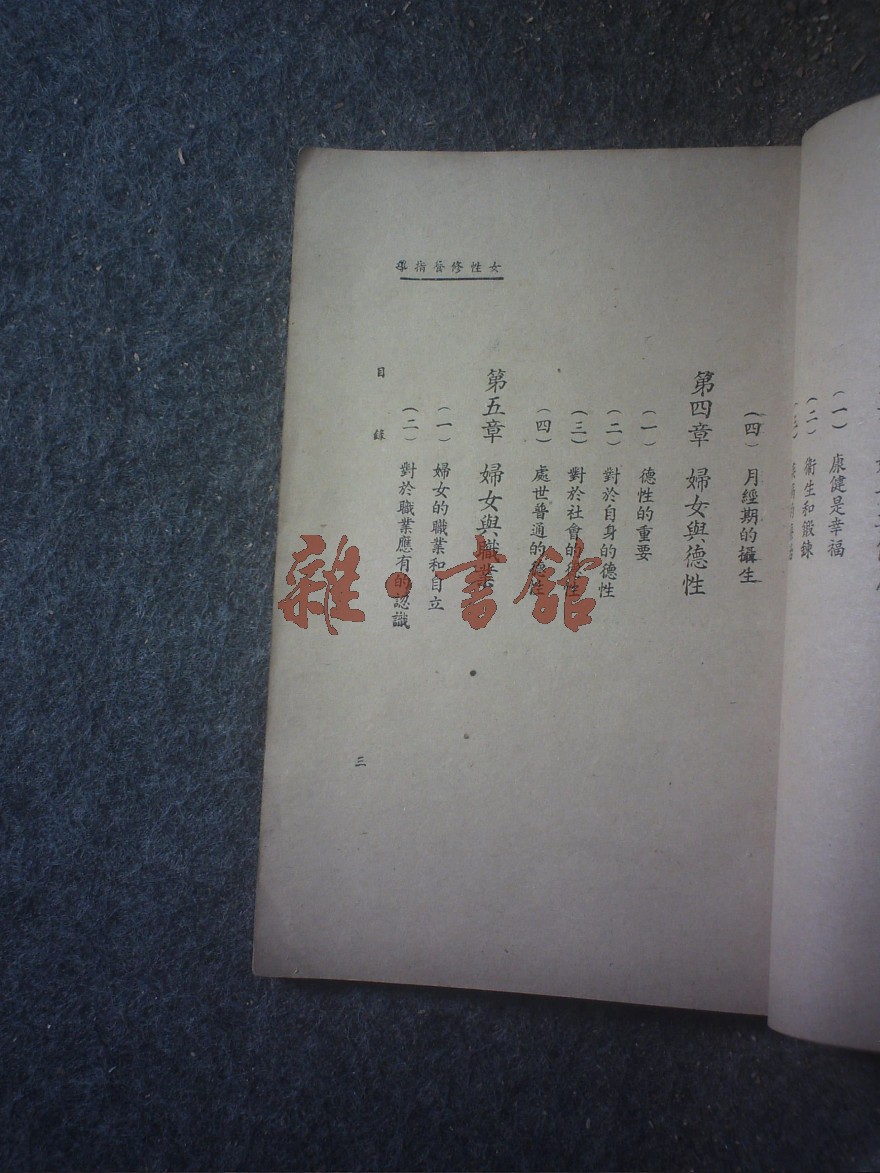 女性修養指導
(一) 康健是幸福
(二) 衞生和鍛鍊
(四) 月經期的攝生
第四章 婦女與德性
(一) 德性的重要
(二) 對於自身的德性
(三) 對於社會的德性
(四) 處世普通的德性
第五章 婦女與職業
(一) 婦女的職業和自立
(二) 對於職業應有的認識
目錄
三
雜·書館